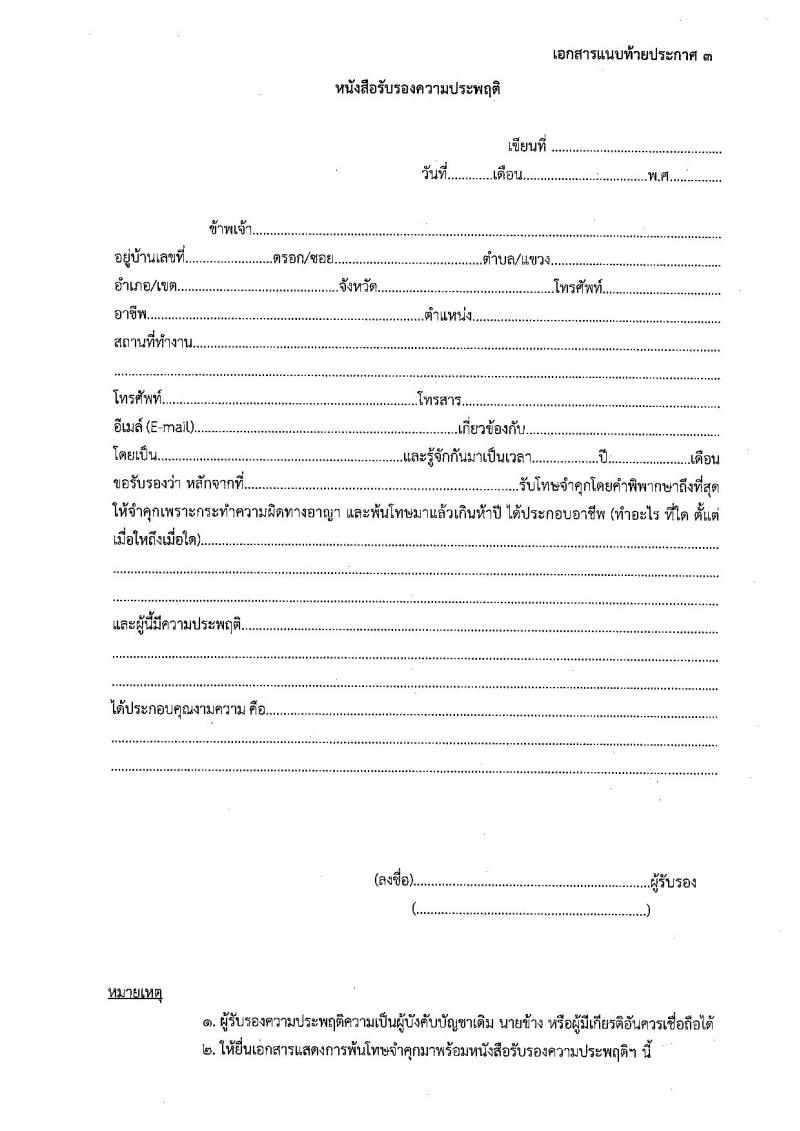 เอกสารแนบท้ายประกาศ ๓
หนังสือรับรองความประพฤติ
เขียนที่ ..........................................
วันที่............เดือน................................พ.ศ.............
ข้าพเจ้า........................................................................................................................
อยู่บ้านเลขที่.......................ตรอก/ซอย.......................................ตำบล/แขวง.............................................
อำเภอ/เขต...........................................จังหวัด..............................................โทรศัพท์...............................
อาชีพ.........................................................................ตำแหน่ง.................................................................
สถานที่ทำงาน...........................................................................................................................................
................................................................................................................................................................
โทรศัพท์...................................................................โทรสาร....................................................................
อีเมล์ (E-mail).....................................................................เกี่ยวข้องกับ...................................................
โดยเป็น................................................................และรู้จักกันมาเป็นเวลา.................ปี.....................เดือน
ขอรับรองว่า หลักจากที่........................................................................รับโทษจำคุกโดยคำพิพากษาถึงที่สุด
ให้จำคุกเพราะกระทำความผิดทางอาญา และพ้นโทษมาแล้วเกินห้าปี ได้ประกอบอาชีพ (ทำอะไร ที่ใด ตั้งแต่
เมื่อใหถึงเมื่อใด).......................................................................................................................................
................................................................................................................................................................
................................................................................................................................................................
และผู้นี้มีความประพฤติ.............................................................................................................................
................................................................................................................................................................
................................................................................................................................................................
ได้ประกอบคุณงามความ คือ......................................................................................................................
................................................................................................................................................................
................................................................................................................................................................
(ลงชื่อ)..............................................................ผู้รับรอง
(.............................................................)
หมายเหตุ
๑. ผู้รับรองความประพฤติความเป็นผู้บังคับบัญชาเดิม นายข้าง หรือผู้มีเกียรติอันควรเชื่อถือได้
๒. ให้ยื่นเอกสารแสดงการพ้นโทษจำคุกมาพร้อมหนังสือรับรองความประพฤติฯ นี้